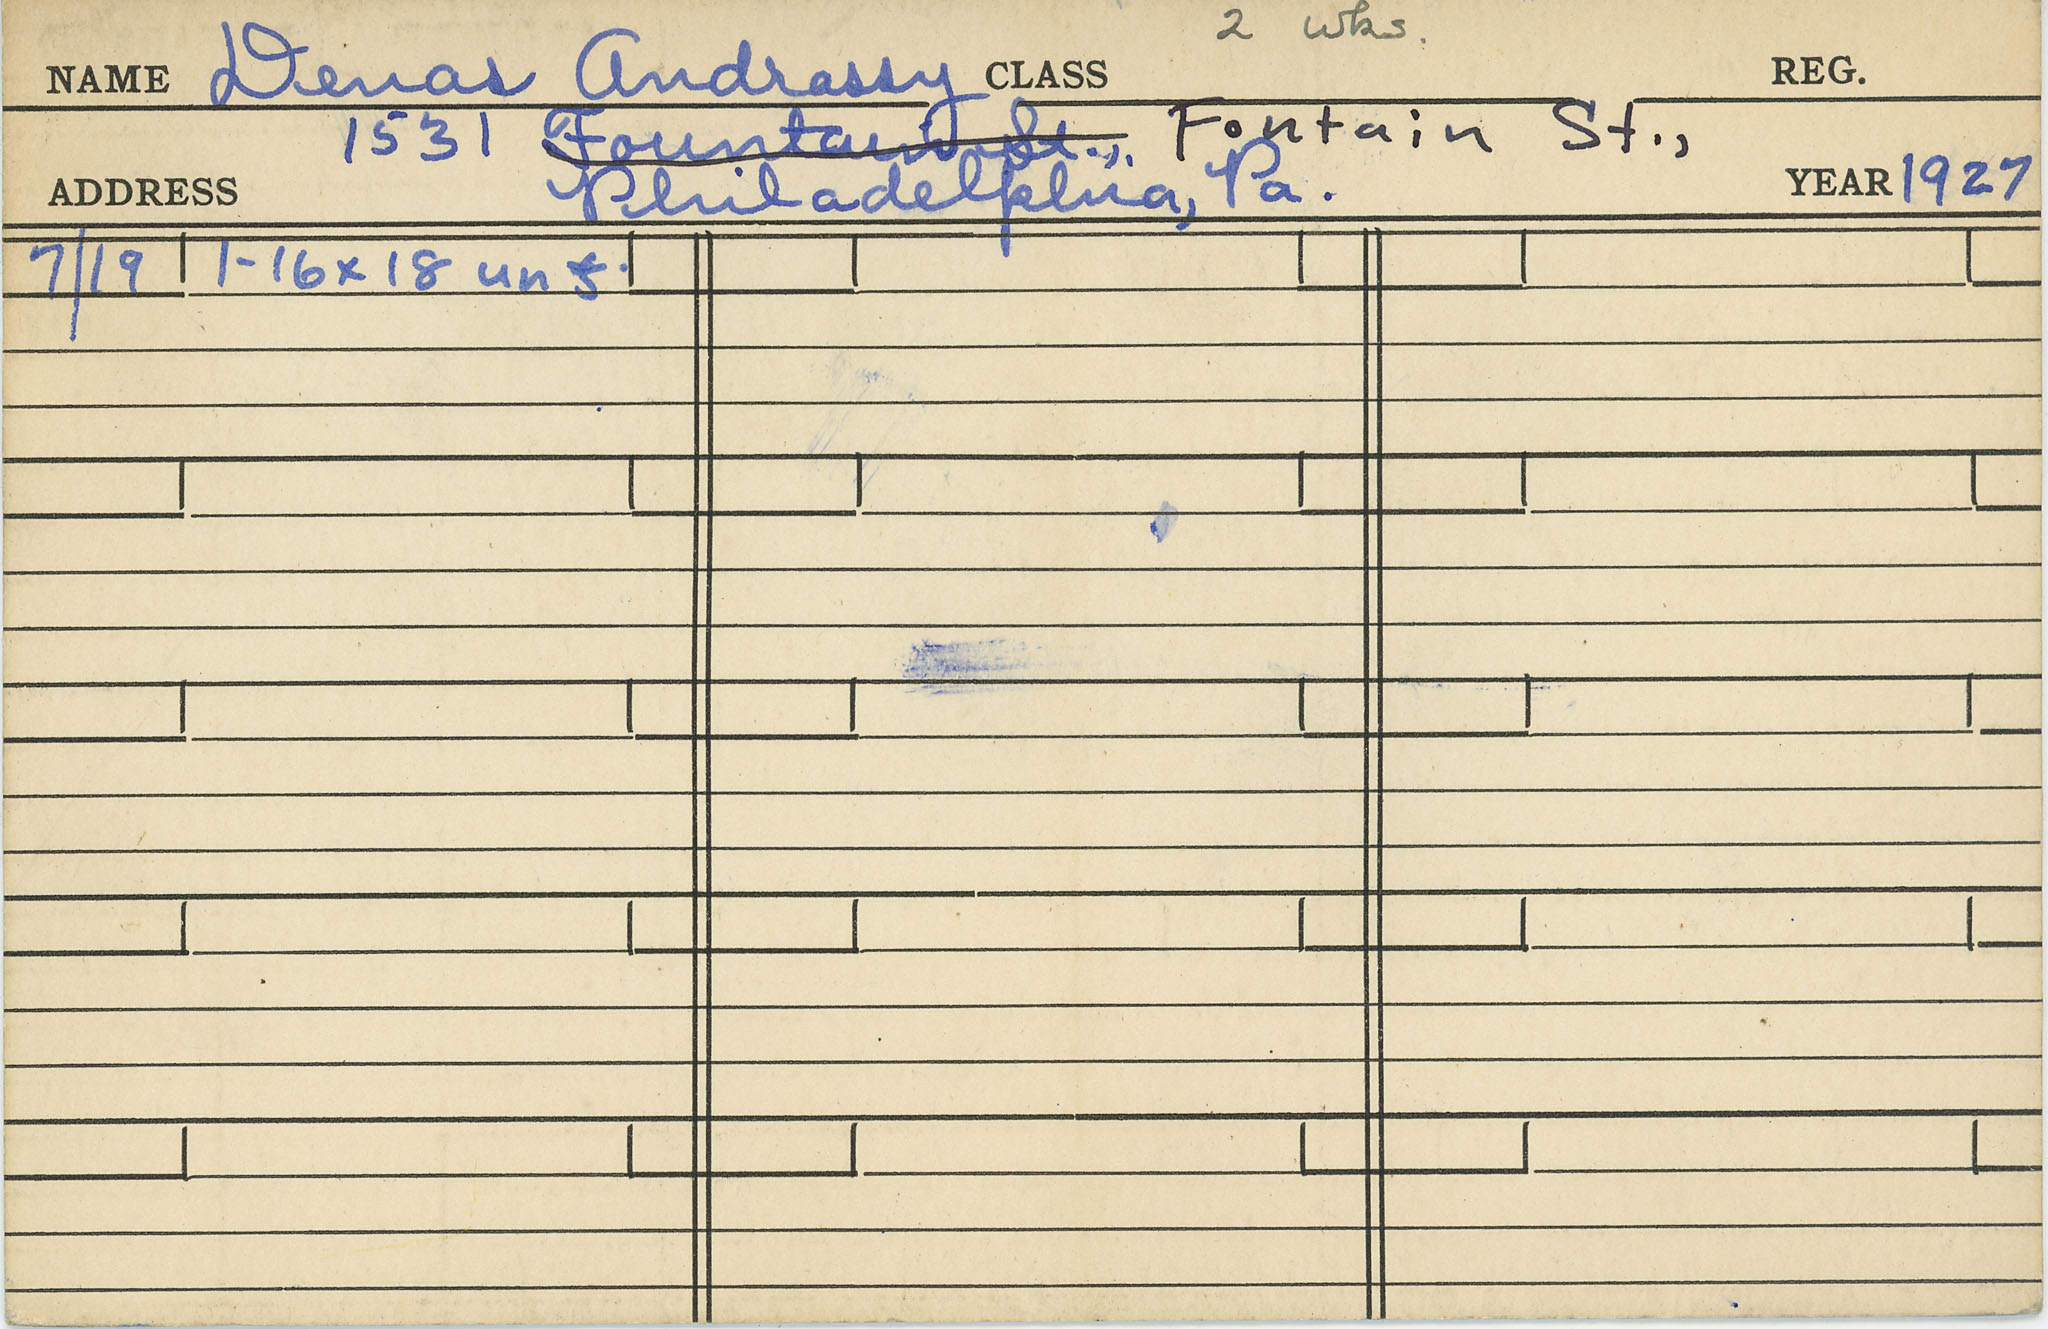 2 wks.
NAME Denas Andrassy CLASS REG.
1531 Fountain St., Fontain St.,
ADDRESS Philadelphia, Pa. YEAR 1927
7/19 1-16 x 18 un